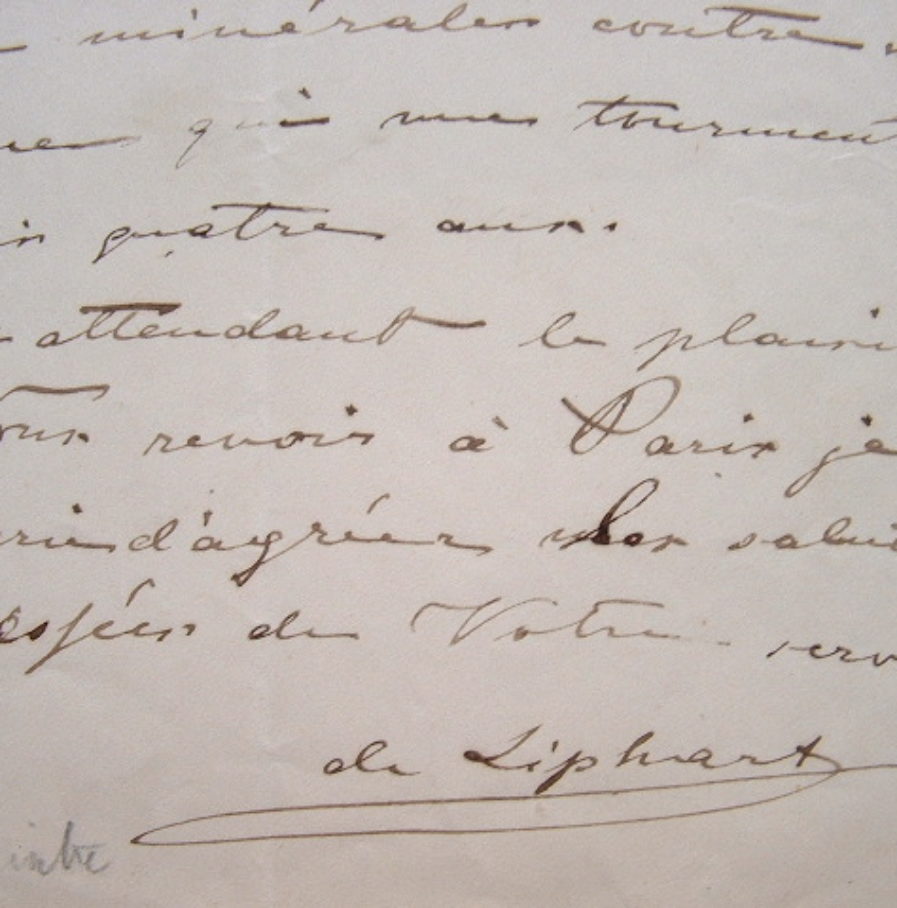 minérales contre
qui me tourment
quatre ans.
attendant le plaisi
revoir à Paris je
d'agréer les salut
de Votre serv
de Liphart